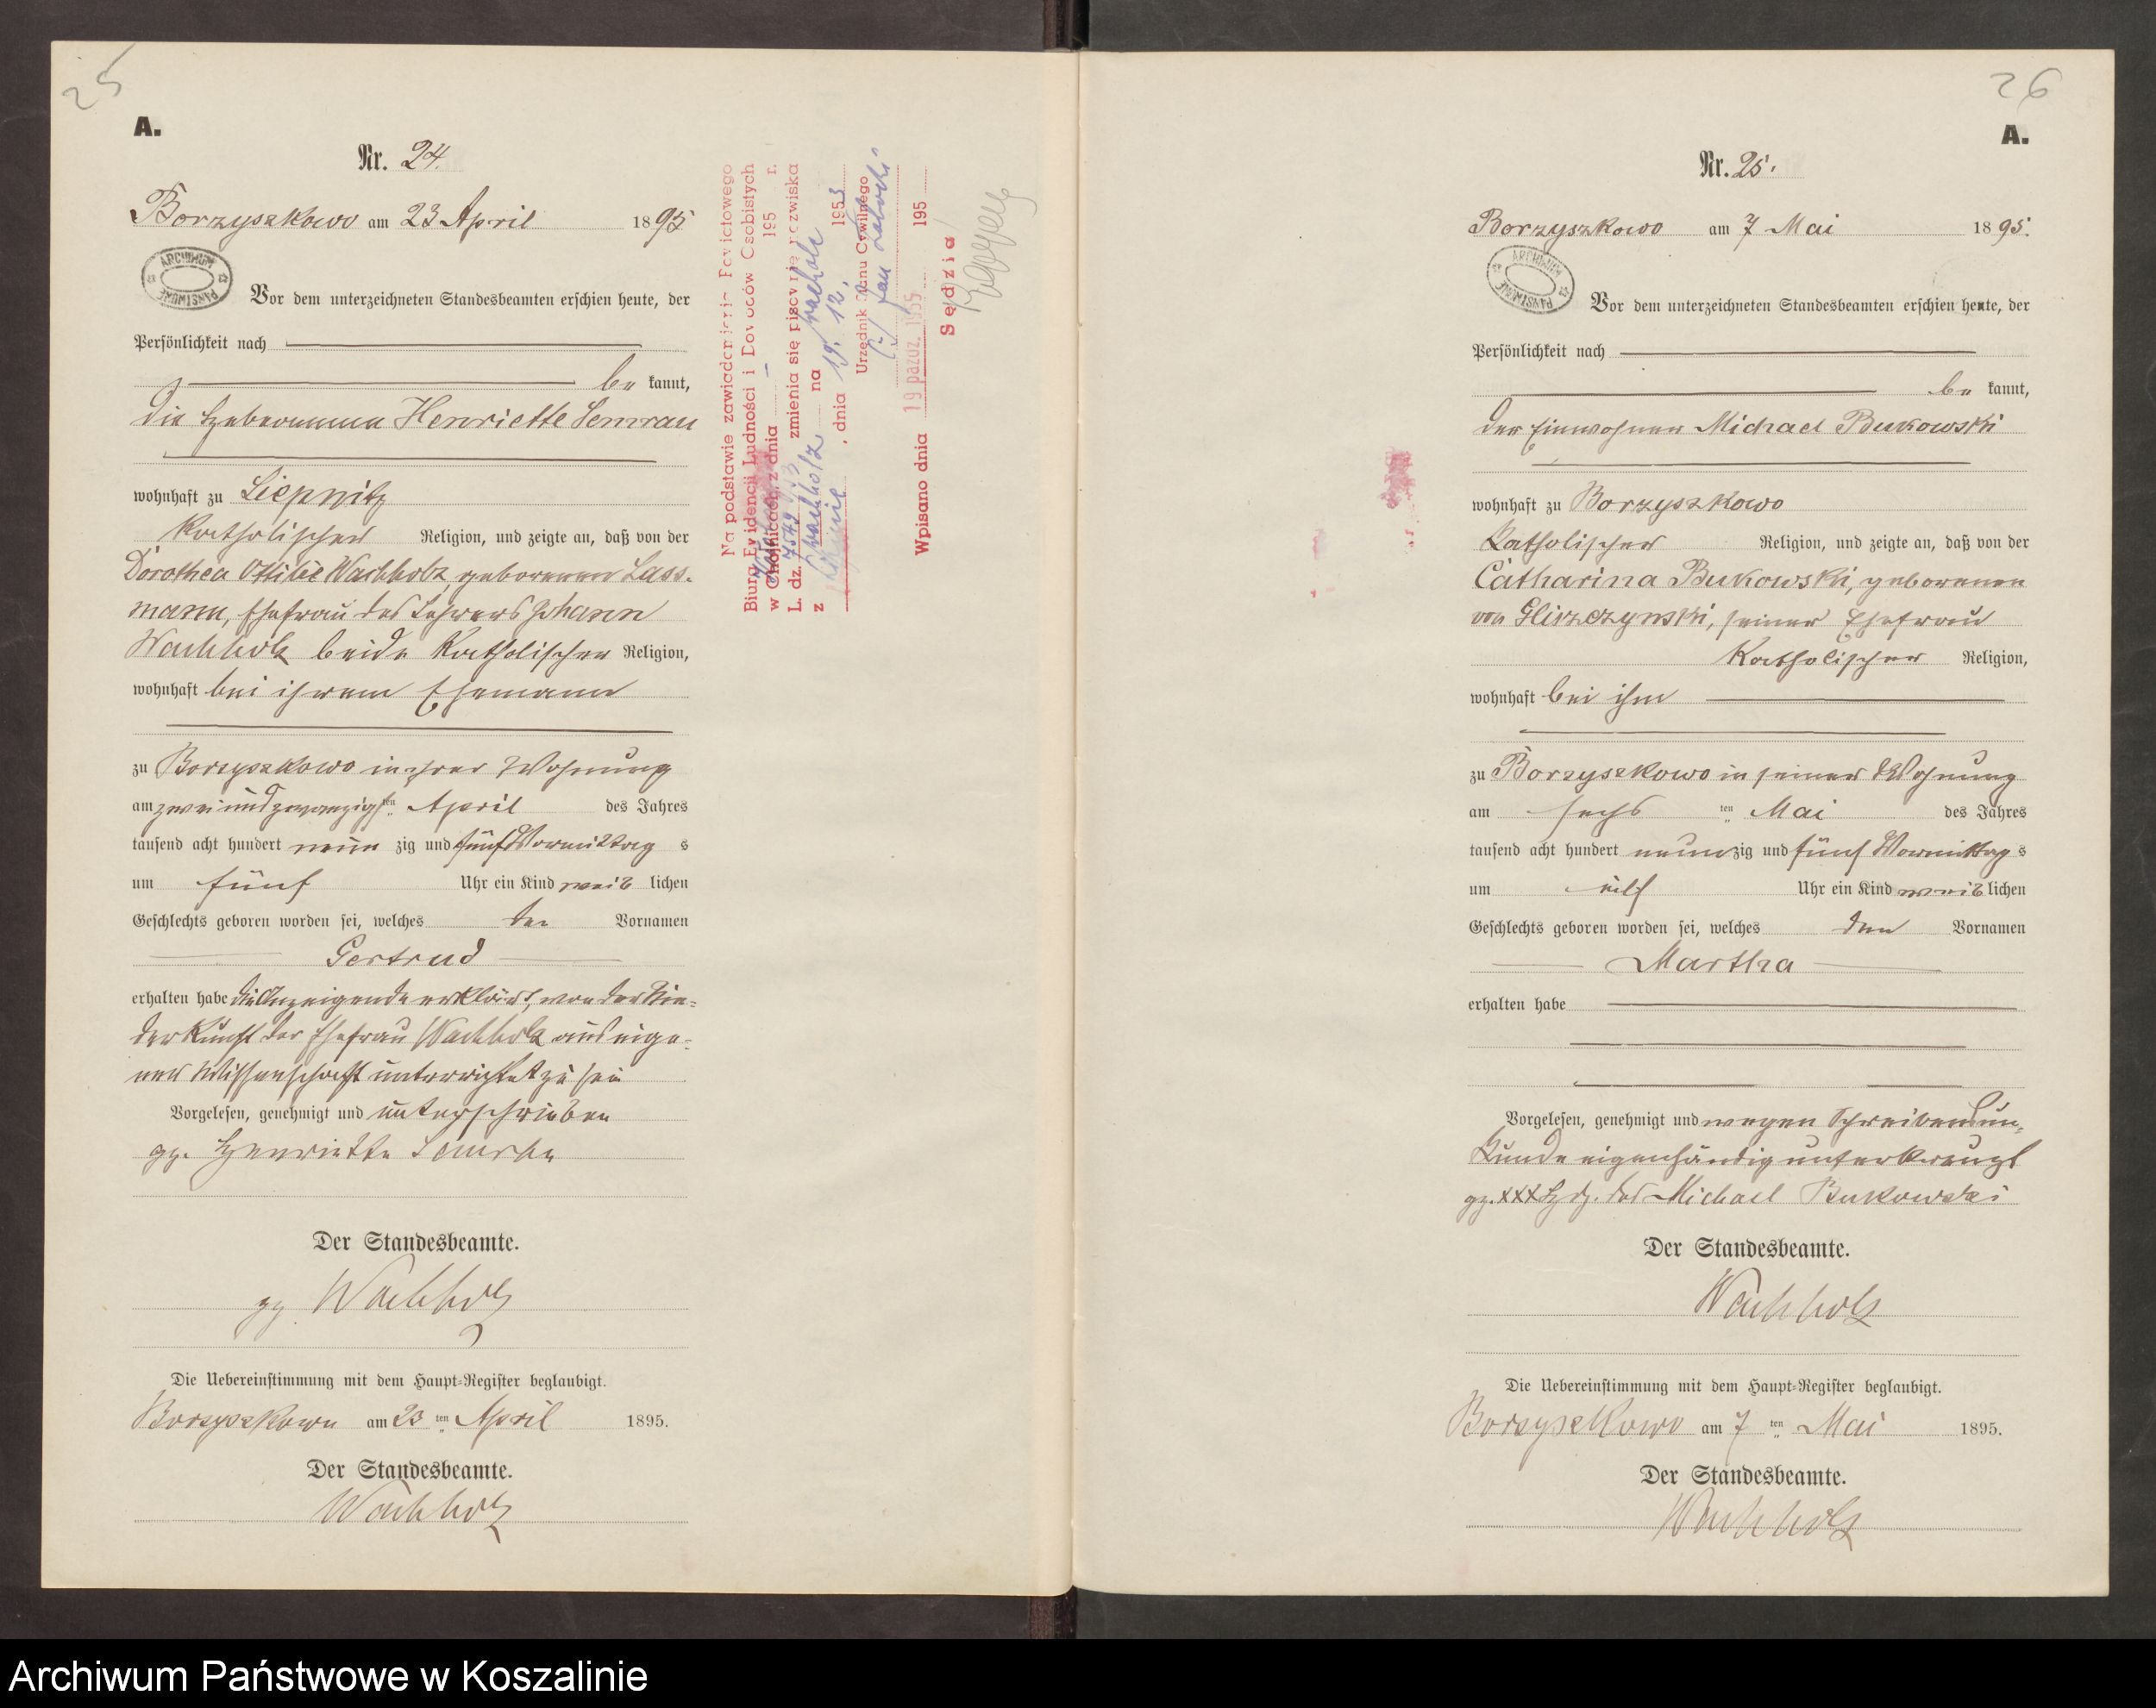 25
A.
Nr. 24.
Borzyszkowo am 23 April 1895
ARCHIWUM PAŃSTWOWE
Vor dem unterzeichneten Standesbeamten erschien heute, der
Persönlichkeit nach
be kannt,
die Hebeamme Henriette Semrau
wohnhaft zu Liepnitz
katholischer Religion, und zeigte an, daß von der
Dorothea Ottilie Wachholz, geborenen Lass-
mann, Ehefrau des Lehrers Johann
Wachholz beide katholischer Religion,
wohnhaft bei ihrem Ehemann
zu Borzyszkowo in ihrer Wohnung
am zwei und zwanzigsten April des Jahres
tausend acht hundert neun zig und fünf Vormittag s
um fünf Uhr ein Kind weib lichen
Geschlechts geboren worden sei, welches den Vornamen
Gertrud
erhalten habe die Anzeigende erklärt, von der Nie-
derkunft der Ehefrau Wachholz aus eige-
ner Wissenschaft unterrichtet zu sein
Vorgelesen, genehmigt und unterschrieben
gz. Henriette Semrau
Der Standesbeamte.
gz Wachholz
Die Uebereinstimmung mit dem Haupt-Register beglaubigt.
Borzyszkowo am 23 ten April 1895.
Der Standesbeamte.
Wachholz
Na podstawie zawiadomienia Powiatowego
Biura Ewidencji Ludności i Dowodów Osobistych
w Chojnicach z dnia 195 r.
L. dz. 7549/53 zmienia się pisownię nazwiska
z Wachholz na Wachholc
, dnia 19. 12. 1953
Urzędnik Stanu Cywilnego
(-) Jan
Wpisano dnia 19 paźdz. 1955 195
Sędzia
26
A.
Nr. 25.
Borzyszkowo am 7 Mai 1895.
ARCHIWUM PAŃSTWOWE
Vor dem unterzeichneten Standesbeamten erschien heute, der
Persönlichkeit nach
be kannt,
der Einwohner Michael Bukowski
wohnhaft zu Borzyszkowo
katholischer Religion, und zeigte an, daß von der
Catharina Bukowski, geborenen
von Gliszczynski, seiner Ehefrau
katholischer Religion,
wohnhaft bei ihm
zu Borzyszkowo in seiner Wohnung
am sechs ten Mai des Jahres
tausend acht hundert neunzig und fünf Vormittag s
um elf Uhr ein Kind weib lichen
Geschlechts geboren worden sei, welches den Vornamen
Martha
erhalten habe
Vorgelesen, genehmigt und wegen Schreibensun-
kunde eigenhändig unterkreuzt
gz. xxx Hdz. des Michael Bukowski
Der Standesbeamte.
Wachholz
Die Uebereinstimmung mit dem Haupt-Register beglaubigt.
Borzyszkowo am 7 ten Mai 1895.
Der Standesbeamte.
Wachholz
Archiwum Państwowe w Koszalinie